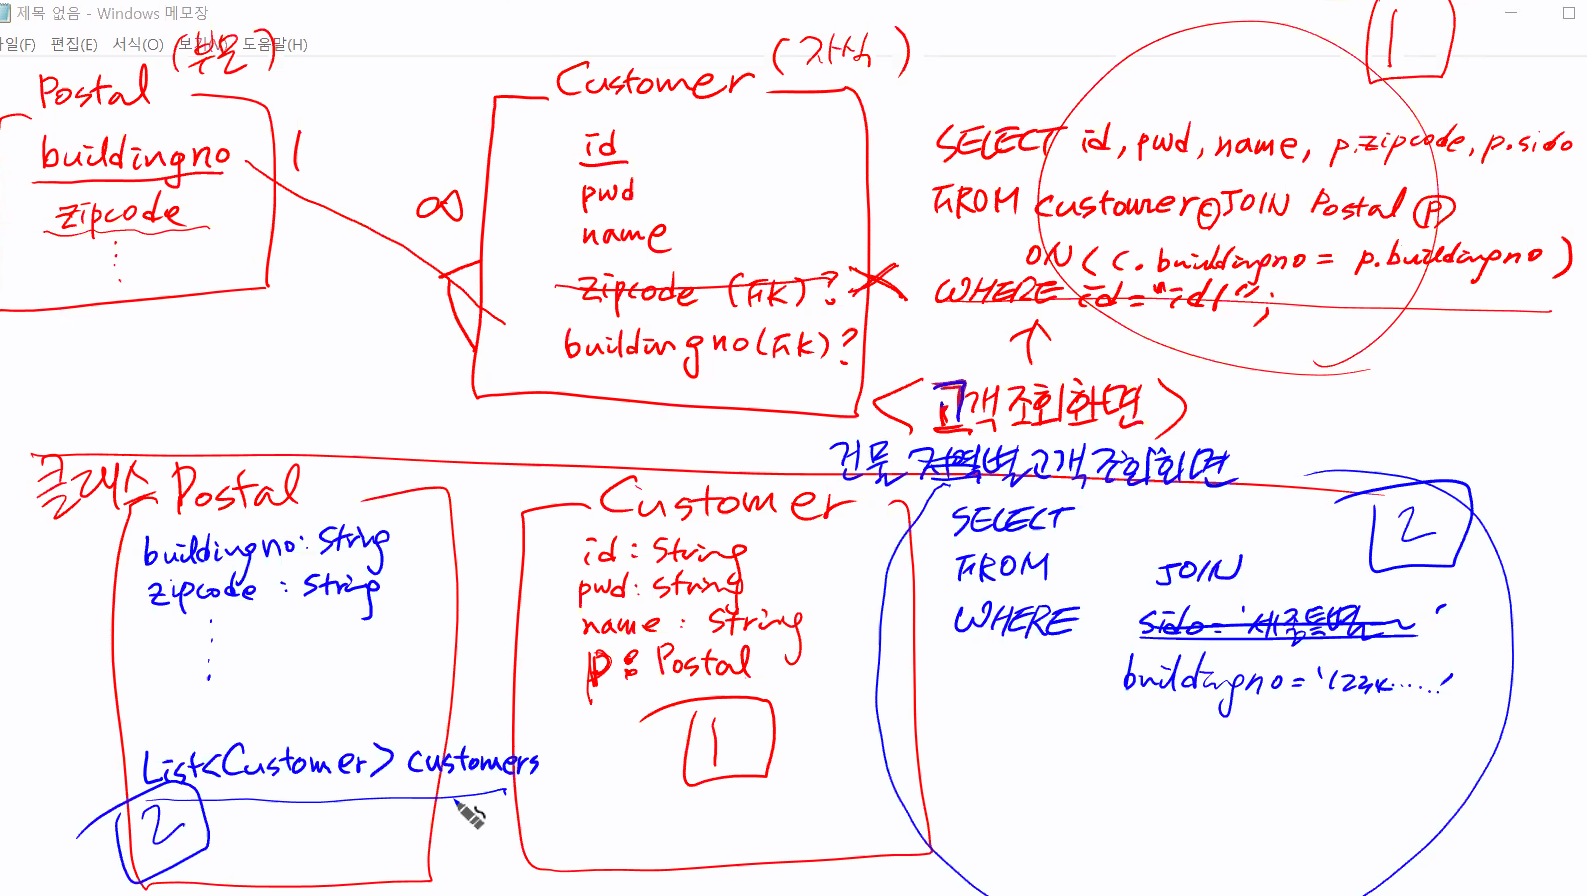 제목 없음 - Windows 메모장
파일(F) 편집(E) 서식(O) 보기(V) 도움말(H)
Postal (부모)
buildingno
zipcode
1
∞
Customer (자식)
id
pwd
name
zipcode (FK)?
buildingno(FK)?
1
SELECT id, pwd, name, p.zipcode, p.sido
FROM customer c JOIN Postal p
ON (c.buildingno = p.buildingno)
WHERE id="id1";
<고객조회화면>
건물 지역별고객조회화면
클래스 Postal
buildingno: String
zipcode : String
List<Customer> customers
2
Customer
id : String
pwd: String
name : String
p : Postal
1
2
SELECT
FROM JOIN
WHERE sido='세종특별
buildingno='123x.....'